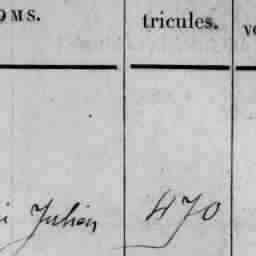 OMS. tricules. v
i Julien 470